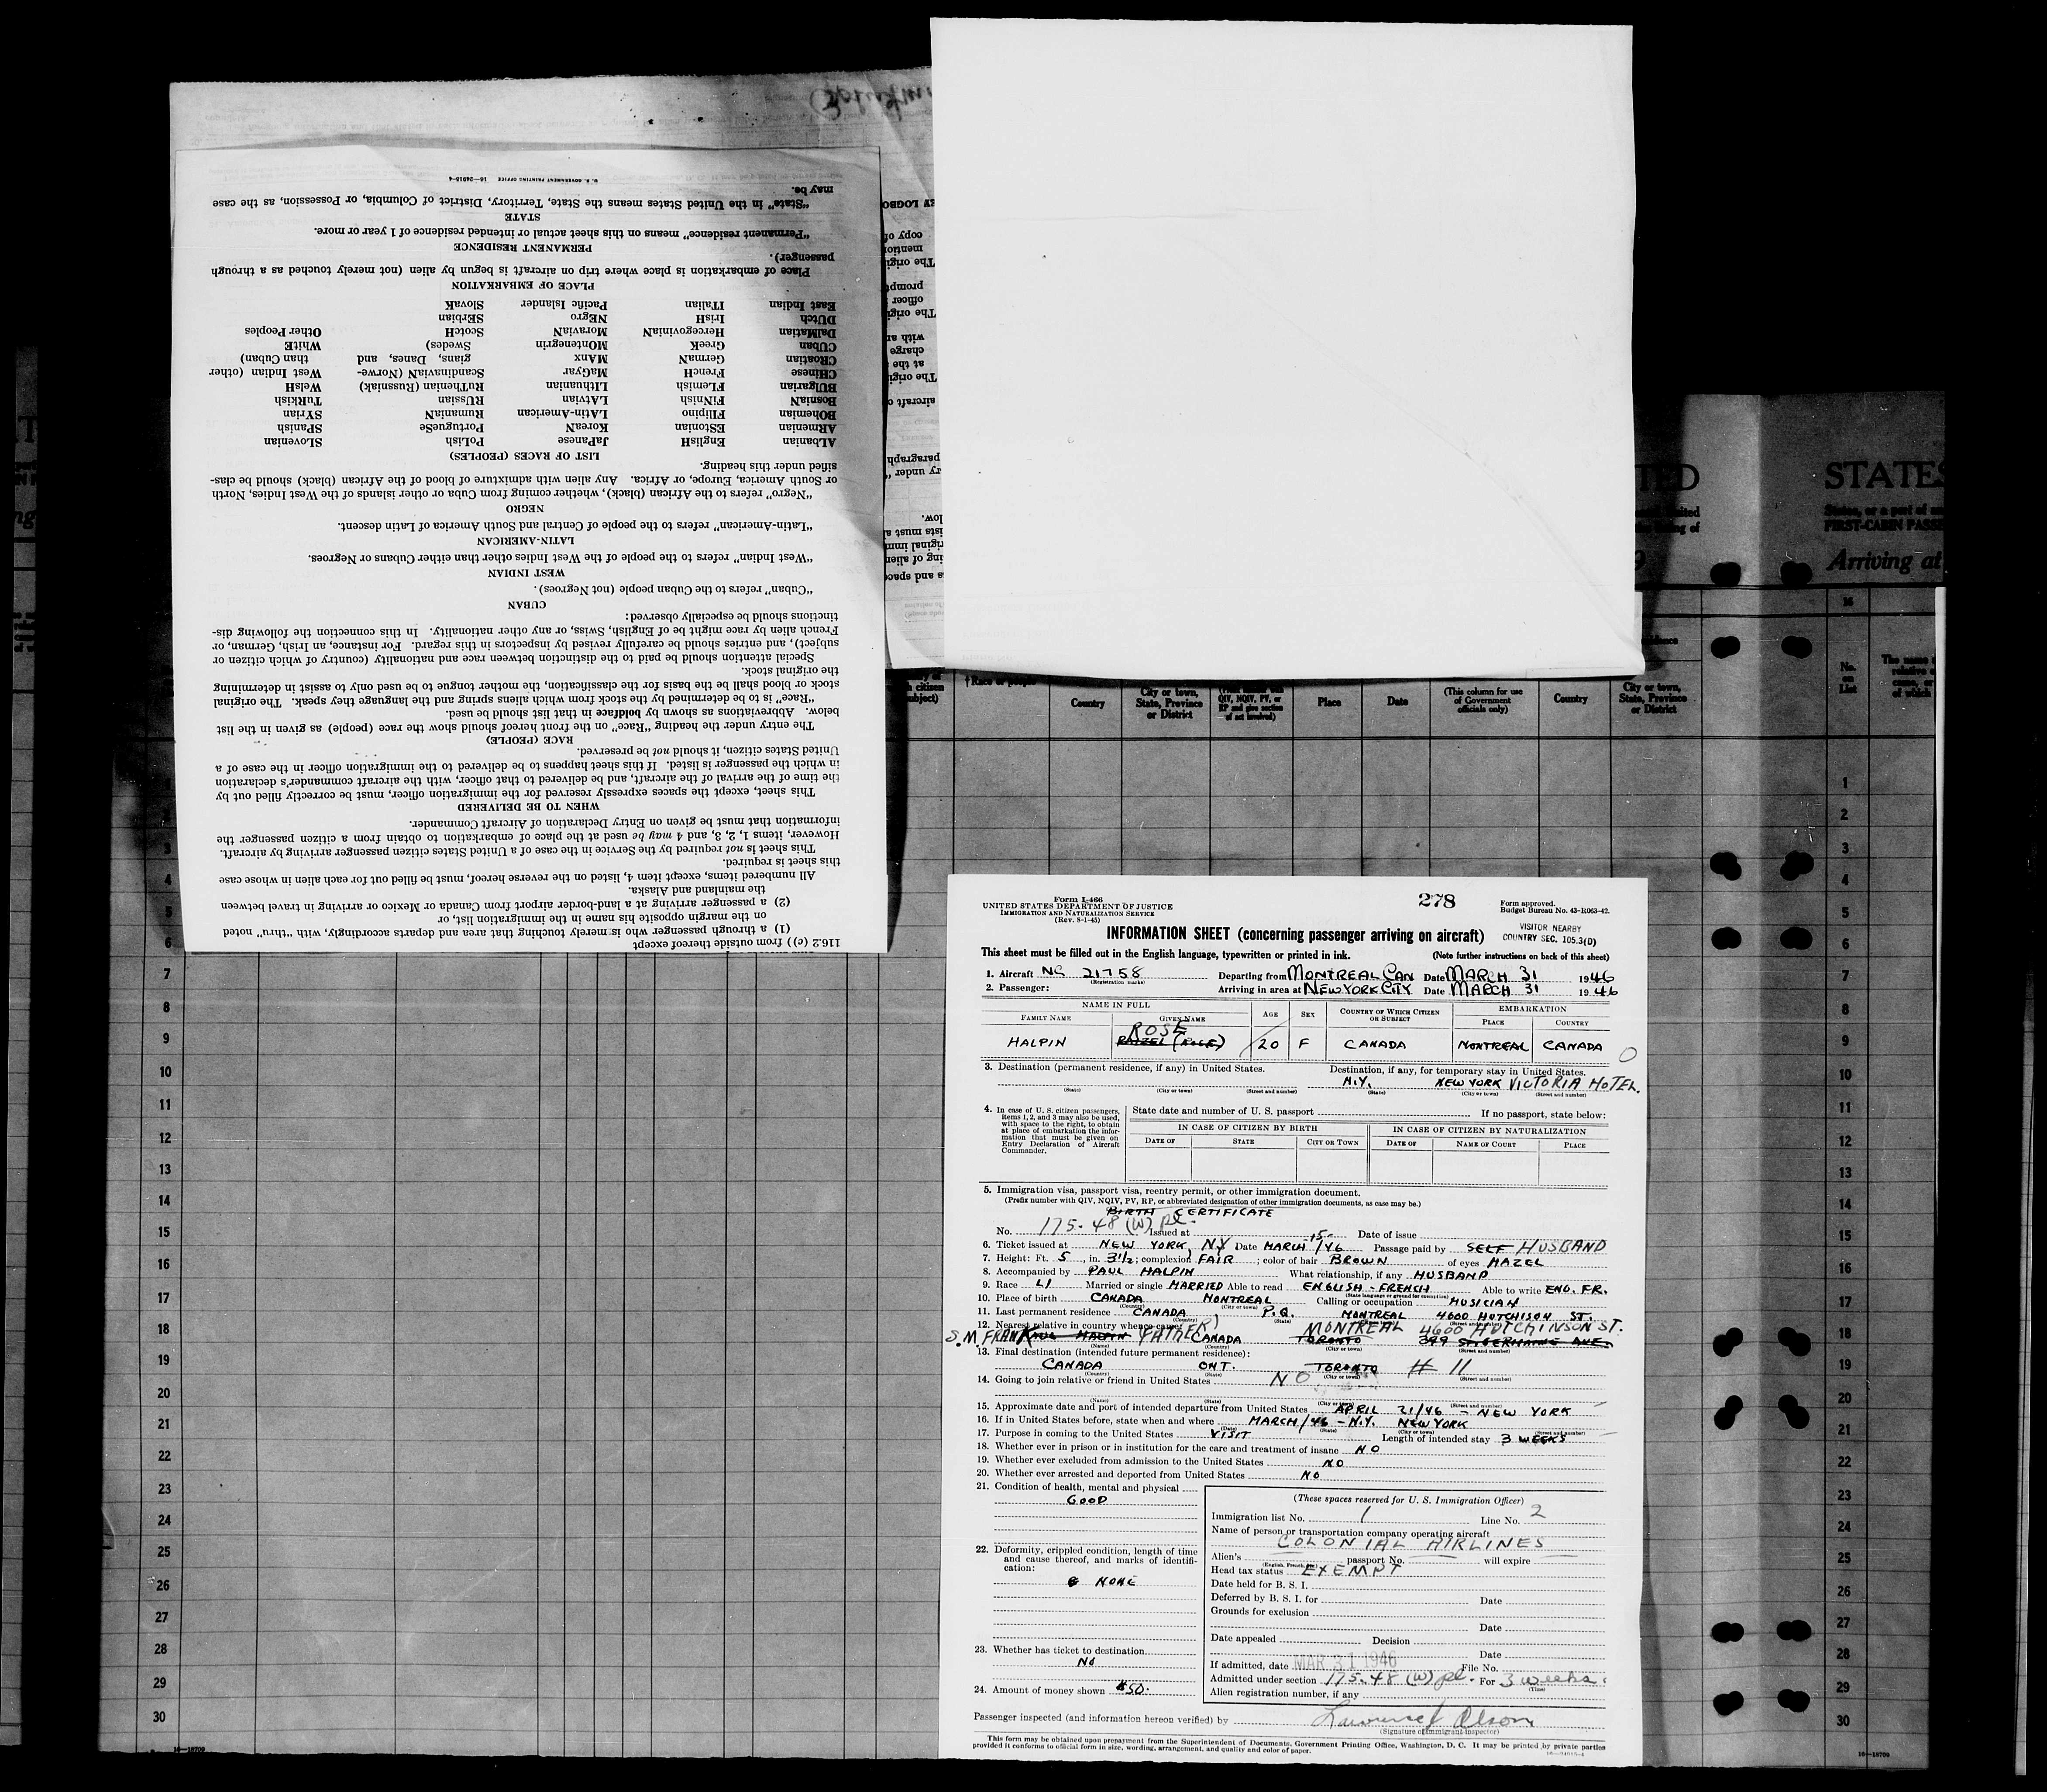 Form I-466
UNITED STATES DEPARTMENT OF JUSTICE
IMMIGRATION AND NATURALIZATION SERVICE
(Rev. 8-1-45)
278
Form approved.
Budget Bureau No. 43-R063-42.
VISITOR NEARBY
COUNTRY SEC. 105.3(D)
INFORMATION SHEET (concerning passenger arriving on aircraft)
This sheet must be filled out in the English language, typewritten or printed in ink. (Note further instructions on back of this sheet)
1. Aircraft NC 21758 Departing from MONTREAL CAN Date MARCH 31 1946
(Registration marks)
2. Passenger: Arriving in area at NEW YORK CITY Date MARCH 31 1946
NAME IN FULL AGE SEX COUNTRY OF WHICH CITIZEN OR SUBJECT EMBARKATION
FAMILY NAME GIVEN NAME PLACE COUNTRY
ROSE
HALPIN (ROSE) 20 F CANADA MONTREAL CANADA
3. Destination (permanent residence, if any) in United States. Destination, if any, for temporary stay in United States.
N.Y. NEW YORK VICTORIA HOTEL.
(State) (City or town) (Street and number) (State) (City or town) (Street and number)
4. In case of U. S. citizen passengers, items 1, 2, and 3 may also be used, with space to the right, to obtain at place of embarkation the information that must be given on Entry Declaration of Aircraft Commander.
State date and number of U. S. passport If no passport, state below:
IN CASE OF CITIZEN BY BIRTH IN CASE OF CITIZEN BY NATURALIZATION
DATE OF STATE CITY OR TOWN DATE OF NAME OF COURT PLACE
5. Immigration visa, passport visa, reentry permit, or other immigration document.
(Prefix number with QIV, NQIV, PV, RP, or abbreviated designation of other immigration documents, as case may be.)
BIRTH CERTIFICATE
No. 175.48 (W) pl. Issued at Date of issue
6. Ticket issued at NEW YORK, NY Date MARCH 15/46 Passage paid by SELF HUSBAND
7. Height: Ft. 5, in. 3½; complexion FAIR; color of hair BROWN of eyes HAZEL
8. Accompanied by PAUL HALPIN What relationship, if any HUSBAND
9. Race LI Married or single MARRIED Able to read ENGLISH - FRENCH Able to write ENG. FR.
(State language or ground for exemption)
10. Place of birth CANADA MONTREAL Calling or occupation MUSICIAN
(Country) (City or town)
11. Last permanent residence CANADA P.Q. MONTREAL 4600 HUTCHISON ST.
(Country) (State) (Street and number)
12. Nearest relative in country whence came MONTREAL 4600 HUTCHINSON ST.
S.M. FRANK PAUL HALPIN (FATHER) CANADA TORONTO 399 ST. GERMAINE AVE.
(Name) (Country) (City or town) (Street and number)
13. Final destination (intended future permanent residence):
CANADA ONT. TORONTO # 11
(Country) (State) (City or town) (Street and number)
14. Going to join relative or friend in United States NO
(Name) (State) (City or town) (Street and number)
15. Approximate date and port of intended departure from United States APRIL 21/46 - NEW YORK
16. If in United States before, state when and where MARCH/46 - N.Y. NEW YORK
(Date) (State) (City or town) (Street and number)
17. Purpose in coming to the United States VISIT Length of intended stay 3 WEEKS
18. Whether ever in prison or in institution for the care and treatment of insane NO
19. Whether ever excluded from admission to the United States NO
20. Whether ever arrested and deported from United States NO
21. Condition of health, mental and physical
GOOD
22. Deformity, crippled condition, length of time and cause thereof, and marks of identification:
NONE
23. Whether has ticket to destination
NO
24. Amount of money shown $50.
(These spaces reserved for U. S. Immigration Officer)
Immigration list No. 1 Line No. 2
Name of person or transportation company operating aircraft
COLONIAL AIRLINES
Alien's passport No. will expire
Head tax status EXEMPT
Date held for B. S. I.
Deferred by B. S. I. for Date
Grounds for exclusion
Date
Date appealed Decision
Date
If admitted, date MAR 31 1946 File No.
Admitted under section 175.48 (W) pl. For 3 weeks.
(Time)
Alien registration number, if any
Passenger inspected (and information hereon verified) by Lawrence J Olson
(Signature of Immigrant Inspector)
This form may be obtained upon prepayment from the Superintendent of Documents, Government Printing Office, Washington, D. C. It may be printed by private parties
provided it conforms to official form in size, wording, arrangement, and quality and color of paper.
116.2 (c)) from outside thereof except
(1) a through passenger who is merely touching that area and departs accordingly, with "thru" noted
on the margin opposite his name in the immigration list, or
(2) a passenger arriving at a land-border airport from Canada or Mexico or arriving in travel between
the mainland and Alaska.
All numbered items, except item 4, listed on the reverse hereof, must be filled out for each alien in whose case
this sheet is required.
This sheet is not required by the Service in the case of a United States citizen passenger arriving by aircraft.
However, items 1, 2, 3, and 4 may be used at the place of embarkation to obtain from a citizen passenger the
information that must be given on Entry Declaration of Aircraft Commander.
WHEN TO BE DELIVERED
This sheet, except the spaces expressly reserved for the immigration officer, must be correctly filled out by
the time of the arrival of the aircraft, and be delivered to that officer, with the aircraft commander's declaration
in which the passenger is listed. If this sheet happens to be delivered to the immigration officer in the case of a
United States citizen, it should not be preserved.
RACE (PEOPLE)
The entry under the heading "Race" on the front hereof should show the race (people) as given in the list
below. Abbreviations as shown by boldface in that list should be used.
"Race" is to be determined by the stock from which aliens spring and the language they speak. The original
stock or blood shall be the basis for the classification, the mother tongue to be used only to assist in determining
the original stock.
Special attention should be paid to the distinction between race and nationality (country of which citizen or
subject), and entries should be carefully revised by inspectors in this regard. For instance, an Irish, German, or
French alien by race might be of English, Swiss, or any other nationality. In this connection the following dis-
tinctions should be especially observed:
CUBAN
"Cuban" refers to the Cuban people (not Negroes).
WEST INDIAN
"West Indian" refers to the people of the West Indies other than either Cubans or Negroes.
LATIN-AMERICAN
"Latin-American" refers to the people of Central and South America of Latin descent.
NEGRO
"Negro" refers to the African (black), whether coming from Cuba or other islands of the West Indies, North
or South America, Europe, or Africa. Any alien with admixture of blood of the African (black) should be clas-
sified under this heading.
LIST OF RACES (PEOPLES)
ALbanian EngliSH JaPanese PoLish SLOvenian
ARMenian EStonian KoreaN PortugueSe SPanish
BOHemian FIlipino LAtin-American RumaniaN SYrian
BosniaN FiNnish LAtvian RUssian TuRkish
BULgarian FLEmish LIthuanian RuThenian (Russniak) WelsH
CHInese FrencH MaGyar ScandinaviaN (Norwe- West Indian (other
CROatian GermaN MAnx gians, Danes, and than Cuban)
CUBan GreeK MOntenegrin Swedes) WhitE
DalMatian HercegoviniaN MoraviaN ScotcH Other Peoples
DUtch IrisH NEgro SErbian
East Indian ITalian Pacific Islander SlovaK
PLACE OF EMBARKATION
Place of embarkation is place where trip on aircraft is begun by alien (not merely touched as a through
passenger).
PERMANENT RESIDENCE
"Permanent residence" means on this sheet actual or intended residence of 1 year or more.
STATE
"State" in the United States means the State, Territory, District of Columbia, or Possession, as the case
may be.
U. S. GOVERNMENT PRINTING OFFICE 16—24915-4
STATES
FIRST-CABIN PASSE
Arriving at
Country
City or town, State, Province or District
Place
Date
(This column for use of Government officials only)
Country
City or town, State, Province or District
No. on List
1
2
3
4
5
6
7
8
9
10
11
12
13
14
15
16
17
18
19
20
21
22
23
24
25
26
27
28
29
30
16—18709